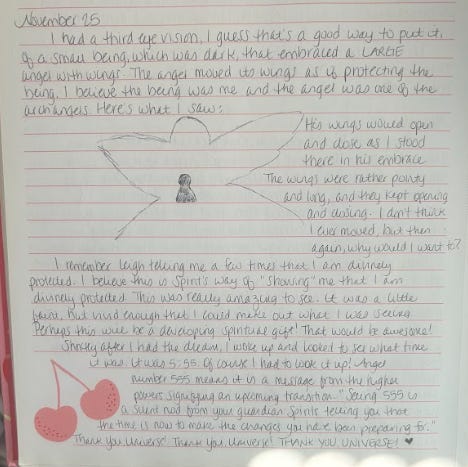 November 25
I had a third eye vision, I guess that's a good way to put it,
of a small being, which was dark, that embraced a LARGE
angel with wings. The angel moved its wings as if protecting the
being. I believe the being was me and the angel was one of the
archangels. Here's what I saw:
His wings would open
and close as I stood
there in his embrace
The wings were rather pointy
and long, and they kept opening
and closing. I don't think
I ever moved, but then
again, why would I want to?
I remember Leigh telling me a few times that I am divinely
protected. I believe this is Spirit's way of "showing" me that I am
divinely protected. This was really amazing to see. It was a little
faint, but vivid enough that I could make out what I was seeing.
Perhaps this will be a developing spiritual gift! That would be awesome!
Shortly after I had the dream, I woke up and looked to see what time
it was. It was 5:55. Of course I had to look it up! Angel
number 555 means it is a message from the higher
powers signifying an upcoming transition. "Seeing 555 is
a silent nod from your guardian spirits telling you that
the time is now to make the changes you have been preparing for."
Thank you, Universe! Thank you, Universe! THANK YOU, UNIVERSE! ♥